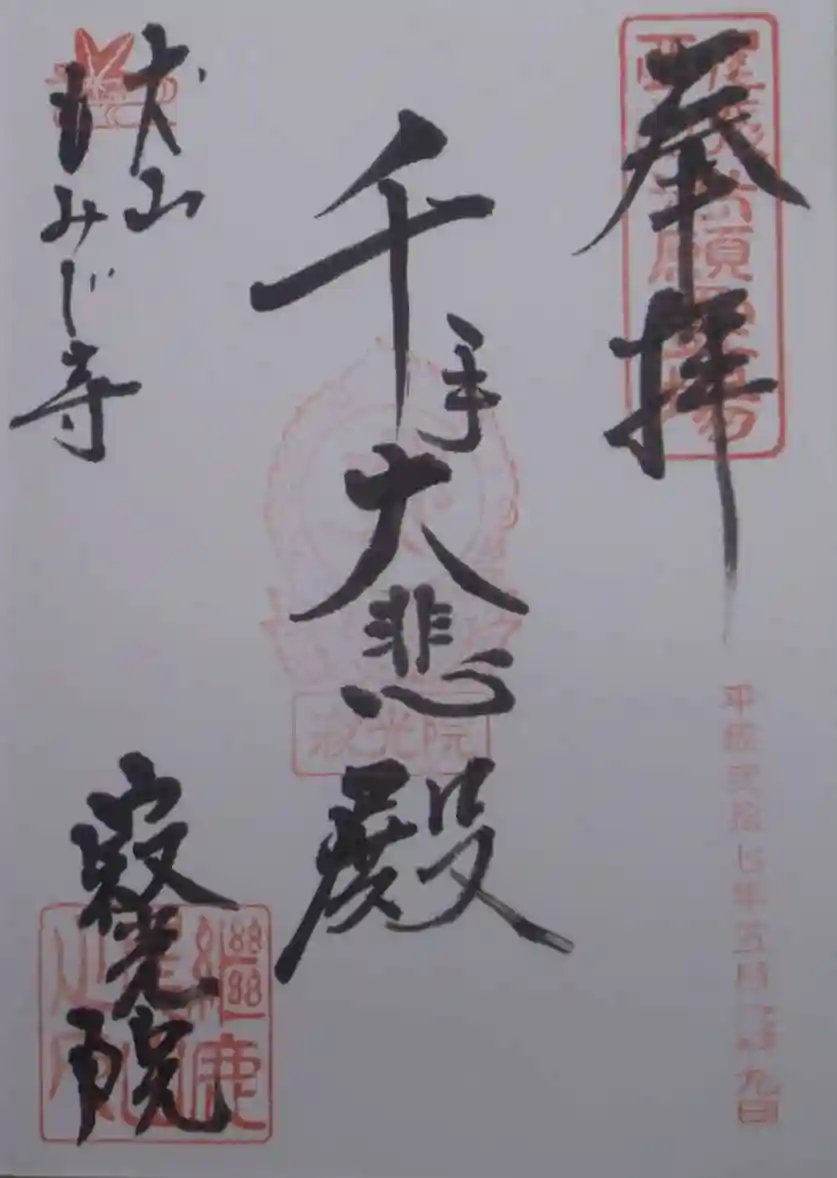 奉拝
平成弐拾七年五月 九日
千手大悲殿
寂光院
犬山
もみじ寺
寂光院
継鹿